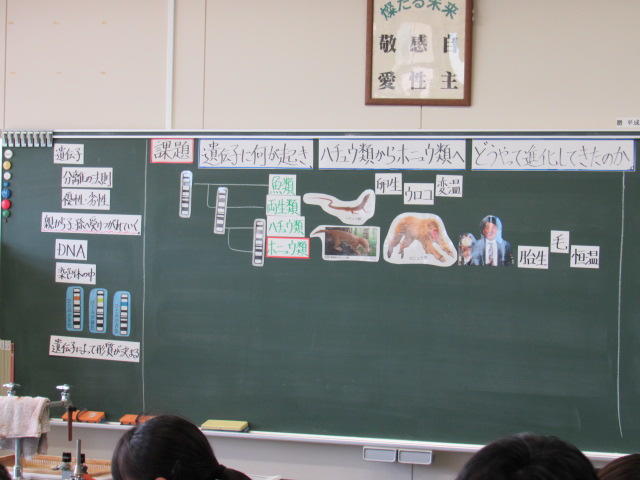 燦たる未来
敬 感 自
愛 性 主
贈 平成
遺伝子
分離の法則
優性・劣性
親から子・孫へ受けつがれていく
DNA
染色体の中
遺伝子によって形質が決まる
課題
遺伝子に何が起き、
ハチュウ類からホニュウ類へ
どうやって進化してきたのか
魚類
両生類
ハチュウ類
ホニュウ類
卵生
ウロコ
変温
胎生
毛
恒温